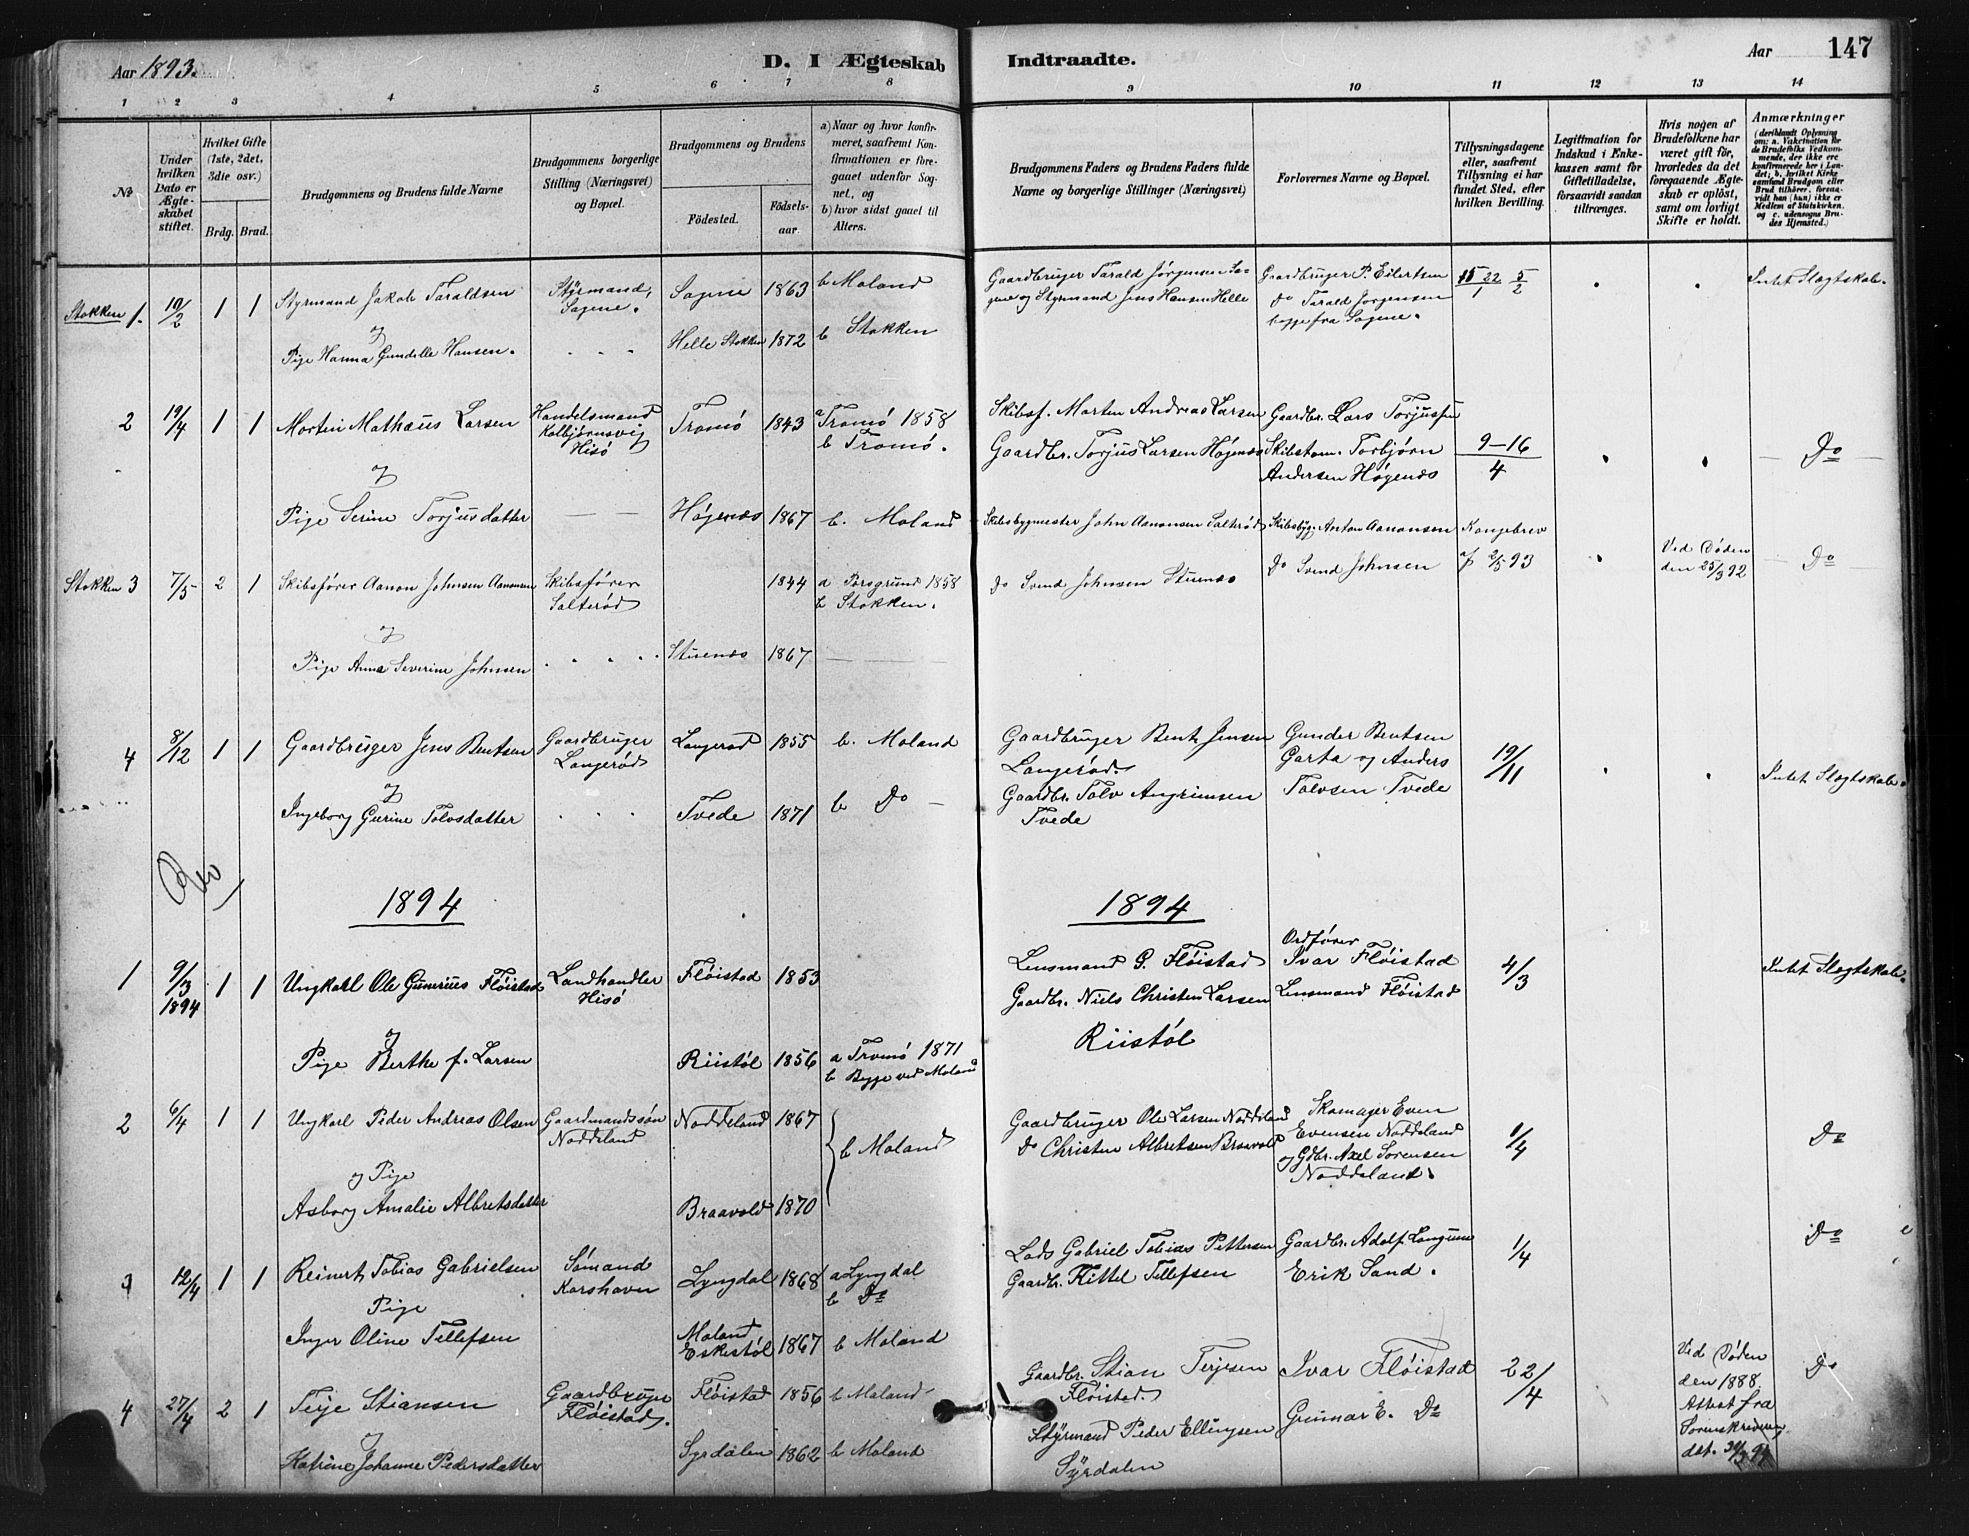 Aar 1893.
D. I Ægteskab Indtraadte.
Aar 147
1 2 3 4 5 6 7 8 9 10 11 12 13 14
No
Under hvilken Dato er Ægteskabet stiftet.
Hvilket Gifte (1ste, 2det, 3die osv.)
Brdg. Brud.
Brudgommens og Brudens fulde Navne
Brudgommens borgerlige Stilling (Næringsvei) og Bopæl.
Brudgommens og Brudens
Fødested.
Fødselsaar.
a) Naar og hvor konfirmeret, saafremt Konfirmationen er foregaaet udenfor Sognet, og
b) hvor sidst gaaet til Alters.
Brudgommens Faders og Brudens Faders fulde Navne og borgerlige Stillinger (Næringsvei)
Forlovernes Navne og Bopæl.
Tillysningsdagene eller, saafremt Tillysning ei har fundet Sted, efter hvilken Bevilling.
Legitimation for Indskud i Enkekassen samt for Giftetilladelse, forsaavidt saadan tiltrænges.
Hvis nogen af Brudefolkene har været gift før, hvorledes da det foregaaende Ægteskab er opløst, samt om lovligt Skifte er holdt.
Anmærkninger
(deriblandt Oplysning om: a. Vakcination for de Brudefolks Vedkommende, der ikke ere konfirmerede her i Landet; b. hvilket Kirkesamfund Brudgom eller Brud tilhører, forsaavidt han (hun) ikke er Medlem af Statskirken, og c. udensogns Brudes Hjemsted.)
Stokken 1. 10/2 1 1 Styrmand Jakob Taraldsen Styrmand, Sagene. Sagene 1863 b Moland
Gaardbruger Tarald Jørgensen Sagene og Styrmand Jens Hansen Helle
Gaardbruger P. Eilertsen
Do Tarald Jørgensen
begge fra Sagene.
15 22/1 5/2
Intet Slegtskab.
og
Pige Hanna Gundille Hansen. Helle Stokken 1872 b Stokken
2 19/4 1 1 Morten Mathæus Larsen Handelsmand Kolbjørnsvig Hisø Tromø 1843 a Tromø 1858
b Tromø.
Skibsf. Morten Andreas Larsen
Gaardbr. Torjus Larsen Høgenæs
Gaardbr. Lars Torjussen
Skibstøm. Torbjørn
Andersen Høgenæs
9-16/4
Do
og
Pige Serine Torjusdatter Høgenæs 1867 b. Moland
Stokken 3 7/5 2 1 Skibsfører Aanon Johnsen Aanonsen Skibsfører Salterød 1844 a Porsgrund 1858
b Stokken.
Skibsbygmester John Aanonsen Salterød
Do Svend Johnsen Stuenæs
Skibsbyg. Anton Aanonsen
Do Svend Johnsen
Kongebrev
af 2/5 93
Ved Døden
den 25/3 92
Do
og
Pige Anna Severine Johnsen Stuenæs 1867
4 8/12 1 1 Gaardbruger Jens Bentsen Gaardbruger Langerød Langerød 1855 b. Moland
Gaardbruger Bent Jensen
Langerød.
Gaardbr. Tolv Angrimsen
Tvede
Gunder Bentsen
Garta og Anders
Tolvsen Tvede
19/11
Intet Slegtskab.
og
Ingeborg Gurine Tolvsdatter Tvede 1871 b Do
1894
1894
1 9/3 1894 1 1 Ungkarl Ole Gunerius Fløistad Landhandler Hisø Fløistad 1853
Lensmand G. Fløistad
Gaardbr. Niels Christen Larsen
Riistøl
Ordfører
Ivar Fløistad
Lensmand Fløistad
4/3
Intet Slegtskab.
og
Pige Berthe f. Larsen Riistøl 1856 a Tromø 1871
b Begge ved Moland
2 6/4 1 1 Ungkarl Peder Andreas Olsen Gaardmandssøn Noddeland Noddeland 1867 b Moland
Gaardbruger Ole Larsen Noddeland
Do Christen Albretsen Braavold
Skomager Even
Evensen Noddeland
og Gdbr. Axel Sørensen
Noddeland.
1/4
Do
og Pige
Asborg Amalie Albretsdatter Braavold 1870
3 12/4 1 1 Reinert Tobias Gabrielsen Sømand Korshavn Lyngdal 1868 a Lyngdal
b Do
Lods Gabriel Tobias Pettersen
Gaardbr. Kittel Tellefsen
Gaardbr. Adolf Longum
Erik Sand.
1/4
Do
Pige
Inger Oline Tellefsen Moland Eskestøl 1867 b Moland
4 27/4 2 1 Terje Stiansen Gaardbruger Fløistad. Fløistad 1856 b Moland
Gaardbr. Stian Terjesen
Fløistad.
Styrmand Peder Ellingsen
Syrdalen
Ivar Fløistad
Gunnar E. Do
22/4
Ved Døden
den 1888.
Attest fra
Sorenskriveren
dat. 30/3 94
Do
og
Katrine Johanne Pedersdatter Syrdalen 1862 b Moland